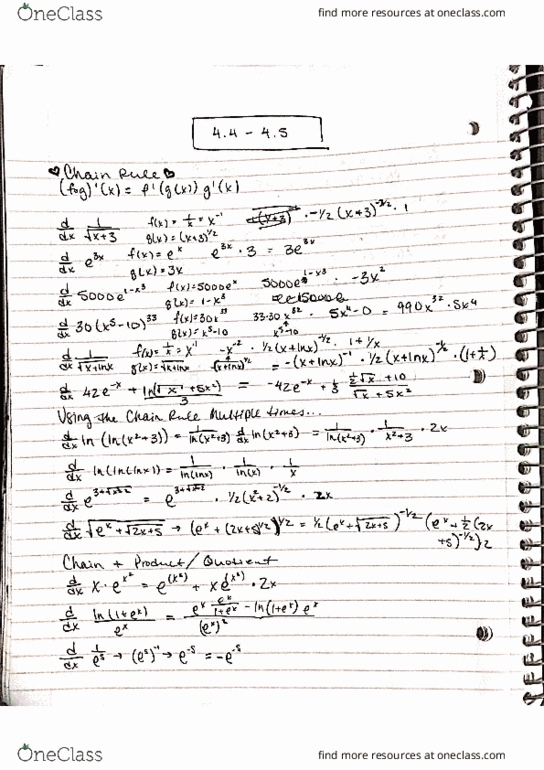 OneClass find more resources at oneclass.com
4.4 - 4.5
♥Chain Rule♥
(fog)'(x) = f'(g(x)) g'(x)
d/dx 1/√x+3 f(x) = 1/x = x^-1 · -1/2 (x+3)^-3/2 · 1
g(x) = (x+3)^1/2
d/dx e^3x f(x) = e^x e^3x · 3 = 3e^3x
g(x) = 3x
d/dx 5000e^1-x³ f(x) = 5000e^x 5000e^1-x³ · -3x²
g(x) = 1-x³
d/dx 30(x⁵-10)^33 f(x) = 30x^33 33·30x^32 · 5x⁴-0 = 990x^32 · 5x⁴
g(x) = x⁵-10 x⁵-10
d/dx 1/√x+lnx f(x) = 1/x = x^-1 -x^-2 · 1/2(x+lnx)^-1/2 · 1+1/x
g(x) = √x+lnx (x+lnx)^1/2 = -(x+lnx)^-1 · 1/2(x+lnx)^-1/2 · (1+1/x)
d/dx 42e^-x + ln(√x + 5x²)/3 = -42e^-x + 1/3 · 1/2√x + 10 / √x + 5x²
Using the Chain Rule Multiple times...
d/dx ln(ln(x²+3)) = 1/ln(x²+3) d/dx ln(x²+3) = 1/ln(x²+3) · 1/x²+3 · 2x
d/dx ln(ln(lnx)) = 1/ln(lnx) · 1/ln(x) · 1/x
d/dx e^3+√x²+2 = e^3+√x²+2 · 1/2(x²+2)^-1/2 · 2x
d/dx √e^x+√2x+5 → (e^x + (2x+5)^1/2)^1/2 = 1/2(e^x+√2x+5)^-1/2 (e^x+1/2(2x
+5)^-1/2)2
Chain + Product/Quotient
d/dx x·e^x² = e^(x²) + xe^(x²) · 2x
d/dx ln(1+e^x)/e^x = e^x e^x/1+e^x - ln(1+e^x) e^x / (e^x)²
d/dx 1/e^s → (e^s)^-1 → e^-s = -e^-s
OneClass find more resources at oneclass.com